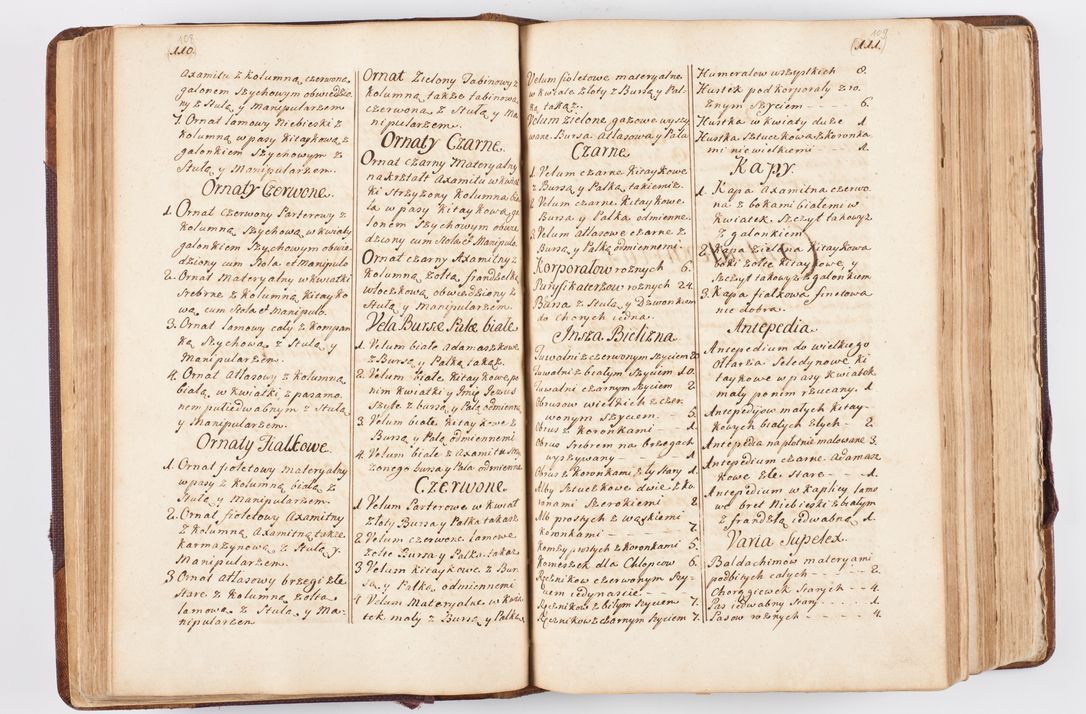 108
110.
Axamitu z kolumną czerwoną
galonem szychowym obwiedzio
ny z Stułą y Manipularzem
7. Ornat lamowy Niebieski z
kolumną w pasy kitaykową z
galonkiem szychowym z
Stułą y Manipularzem.
Ornaty Czerwone.
1. Ornat czerwony Parterowy z
kolumną szychową w kwiaty
galonkiem szychowym obwie
dziony cum Stola et Manipulo
2. Ornat Materyalny w kwiatki
srebrne z kolumną kitayko
wą cum Stola et Manipulo.
3. Ornat lamowy cały z kompan
ką szychową z Stułą y
Manipularzem.
4. Ornat Atłasowy z kolumną
białą w kwiatki z pasamo
nem pułiedwabnym z Stułą
y Manipularzem.
Ornaty Fiałkowe.
1. Ornat fioletowy materyalny
w pasy z kolumną białą z
Stułą y Manipularzem.
2. Ornat fioletowy Axamitny
z kolumną Axamitną także
karmazynową z Stułą y
Manipularzem.
3 Ornat atłasowy brzegi złe
stare z kolumną żołtą
lamową z Stułą y Ma-
nipularzem
Ornat Zielony Tabinowy z
kolumną także tabinową
czerwoną z Stułą y Ma
nipularzem.
Ornaty Czarne.
Ornat czarny Materyalny
na kształt Axamitu w kwiat
ki Strzyzony kolumna bia
ła w pasy kitaykowa ga
lonem szychowym obwie
dziony cum Stola et Manipulo.
Ornat czarny Axamitny z
kolumną żołtą frandzelką
włoczkową obwiedziony z
Stułą y Manipularzem.
Vela Bursæ Pałkę białe
1. Velum białe adamaszkowe
z Bursą y Pałką takąż.
2. Velum białe kitaykowe po
nim kwiatki y Jmię Jezus
szyte z bursą y Palą odmienną
3. Velum białe kitaykowe z
Bursą y Palą odmiennemi
4. Velum białe z Axamitu strzy
zonego bursa y Pala odmienna
Czerwone.
1 Velum Parterowe w kwiat
złoty Bursa y Pałka takaż
2 Velum czerwone lamowe
żołte Bursa y Pałka takaż
3 Velum kitaykowe z Bur
są y Pałką odmiennemi
4 Velum Materyalne w kwia
tek mały z Bursą y Pałką
109
111.
Velum fioletowe materyalne
w kwiate złoty z Bursą y Pał
ką takąż.
Velum zielone gazowe wyszy
wane Bursa Atłasowa y Pala
Czarne
1. Velum czarne kitaykowe
z Bursą y Pałką takiemiż.
2 Velum czarne kitaykowe
Bursa y Pałka odmienne.
3. Velum atłasowe czarne z
Bursą y Pałką odmiennemi
Korporałow rożnych 6.
Puryfikaterzow rożnych 24.
Bursa z Stułą y Dzwonkiem
do Chorych iedna.
Jnsza Bielizna
Tuwalni z czerwonym szyciem 20
Tuwalni z białym szyciem 10.
Tuwalni czarnym szyciem 2
Obrusow wielkich z czer
wonym szyciem. 5.
Obrus z koronkami - - 1
Obrus srebrem na brzegach
wyszywany - - - 1
Obrus z koronkami zły stary 1.
Alby sztuczkowe dwie z ko
ronami szerokiemi 2
Alb prostych z wąskiemi
koronkami - - - - 7.
Komży prostych z koronkami 5.
Komeszek dla Chłopcow 6.
Ręcznikow czerwonym szy-
ciem iedynaście - - - -
Ręcznikow z białym szyciem 7.
Ręcznikow z czarnym szyciem 7.
Humerałow wszystkich 8.
Hustek pod korporały z ro
żnym szyciem - - - - 6.
Hustka w kwiaty duże 1
Hustka sztuczkowa z koronka
mi niewielkiemi - - 1.
Kapy
1. Kapa axamitna czerwo
na z bokami białemi w
kwiatek. Szczyt takowyż
z galonkiem
2. Kapa zielona kitaykowa
boki żołte kitaykowe, y
szczyt takowyż z galonkiem
3. Kapa fiałkowa Sinetowa
nie dobra.
Antepedia.
Antepedium do wielkiego
Ołtarza Seledynowe ki
taykowe w pasy kwiatek
mały po nim rzucany. 1
Antepedyow małych kitay-
kowych białych złych - 2.
Antepedia na płotnie malowane 3.
Antepedium czarne Adamasz
kowe złe stare - - - 1.
Antepedium w kaplicy lamo
we bret Niebieski z białym
z frandzlą iedwabną 1.
Varia Supelex.
Baldachimow materyami
podbitych całych - - - 2.
Chorągiewek starych - - 4.
Pas iedwabny stary - - - 1.
Pasow rożnych - - - - 4.